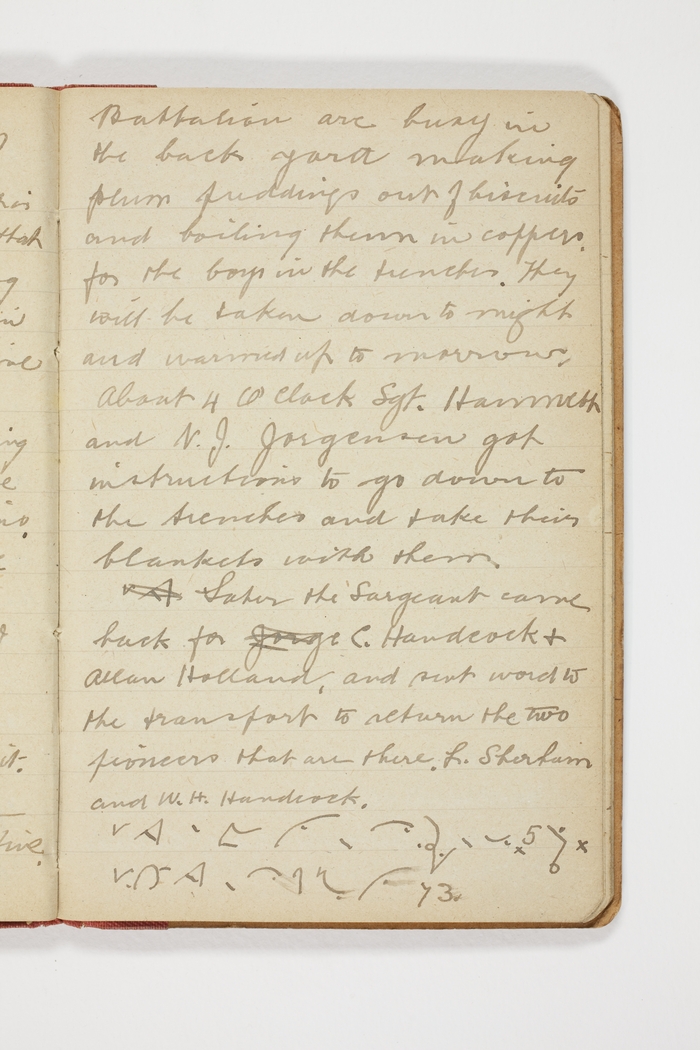 Battalion are busy in
the back yard making
plum puddings out of biscuits
and boiling them in coppers
for the boys in the trenches. They
will be taken down to night
and warmed up to morrow.
About 4 O Clock Sgt. Hammett
and N. J. Jorgensen got
instructions to go down to
the trenches and take their
blankets with them
Later the Sargeant came
back for Jorge C. Handcock &
Allan Holland, and sent word to
the transport to return the two
pioneers that are there. L. Sherham
and W. H. Handcock.